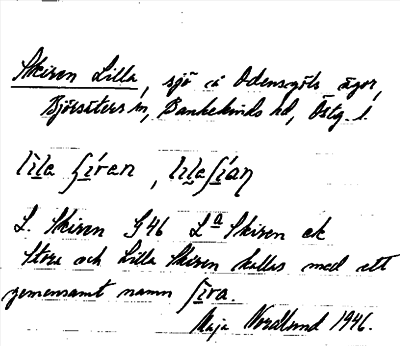 Skiren Lilla, sjö å Odensgöls ägor,
Björsäters sn, Bankekinds hd, Östg. l.
lila ʃi̱ran, lilaʃi̱an
L. Skiren G46 La Skiren ek
Stora och Lilla Skiren kallas med ett
gemensamt namn ʃi̱ra.
Maja Nordlund 1946.